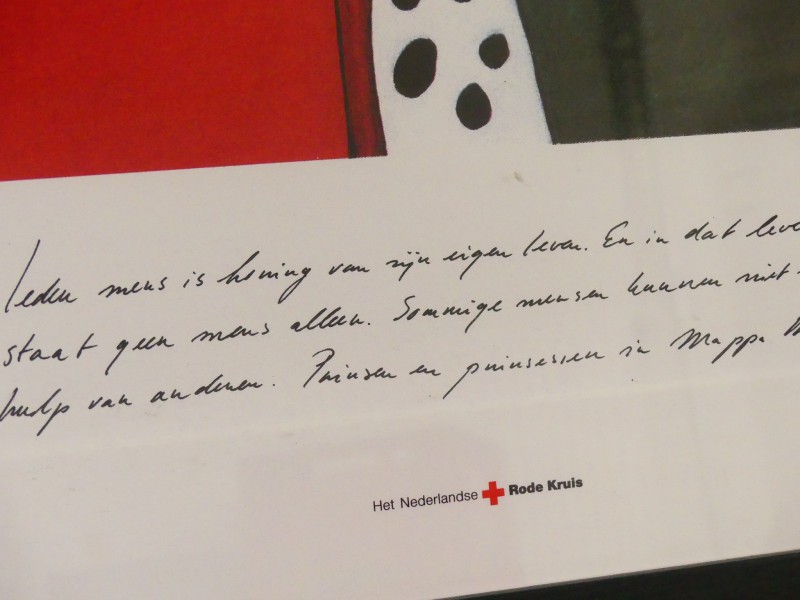 Ieder mens is koning van zijn eigen leven. En in dat leve
staat geen mens alleen. Sommige mensen kunnen niet
hulp van anderen. Prinsen en prinsessen in Mappa M
Het Nederlandse Rode Kruis